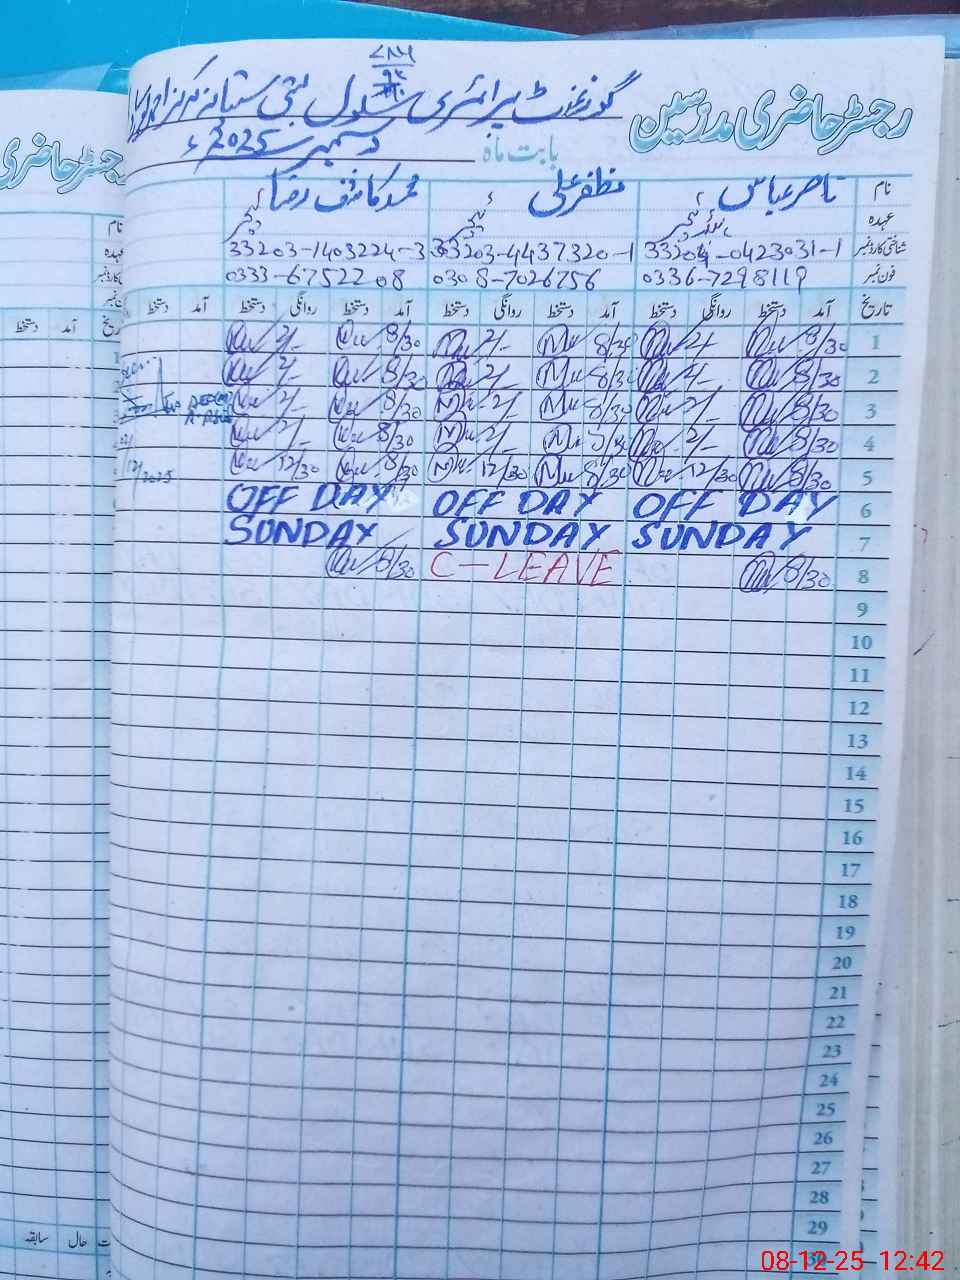 ۷۸۶
۹۲
۱۱۰
رجسٹر حاضری مدرسین گورنمنٹ پرائمری سکول بستی
بابت ماہ دسمبر 2025ء
نام ناصر عباس مظفر علی محمد کاشف رضا
عہدہ ٹیچر ٹیچر
شناختی کارڈ نمبر 33204-0423031-1 33203-4437320-1 33203-1403224-3
فون نمبر 0336-7298119 0308-7026756 0333-6752208
تاریخ آمد دستخط روانگی دستخط آمد دستخط روانگی دستخط آمد دستخط روانگی دستخط آمد دستخط
1 8/30 2/- 8/30 2/- 8/30 2/-
2 8/30 2/- 8/30 2/- 8/30 2/-
3 8/30 2/- 8/30 2/- 8/30 2/-
4 8/30 2/- 8/30 2/- 8/30 2/-
5 8/30 12/30 8/30 12/30 8/30 12/30
6 OFF DAY OFF DAY OFF DAY
7 SUNDAY SUNDAY SUNDAY
8 8/30 C-LEAVE 8/30
9
10
11
12
13
14
15
16
17
18
19
20
21
22
23
24
25
26
27
28
29
30
12/2025
رجسٹر حاضری
نام
عہدہ
آمد دستخط
حال سابقہ
08-12-25 12:42